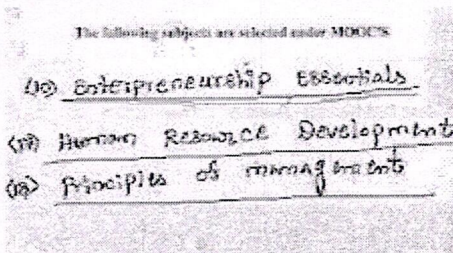 The following subjects are selected under MOOC'S
Enterpreneurship Essentials
Human Resource Development
Principles of management